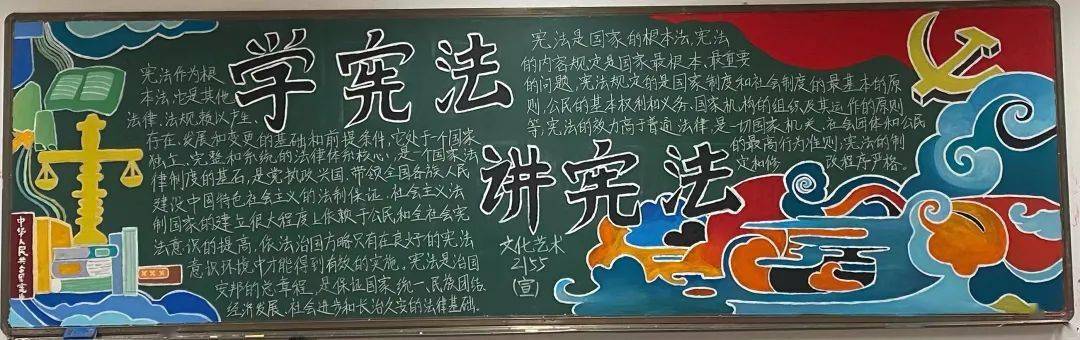 学宪法
讲宪法
宪法作为根
本法，它是其他
法律、法规赖以产生、
存在、发展和变更的基础和前提条件，它处于一个国家
独立、完整和系统的法律体系核心，是一个国家法
律制度的基石，是党执政兴国、带领全国各族人民
建设中国特色社会主义的法制保证。社会主义法
制国家的建立很大程度上依赖于公民和全社会宪
法意识的提高，依法治国方略只有在良好的宪法
意识环境中才能得到有效的实施。宪法是治国
安邦的总章程，是保证国家统一、民族团结、
经济发展、社会进步和长治久安的法律基础。
宪法是国家的根本法，宪法
的内容规定是国家最根本、最重要
的问题，宪法规定的是国家制度和社会制度的最基本的原
则，公民的基本权利和义务，国家机构的组织及其运作的原则
等，宪法的效力高于普通法律，是一切国家机关、社会团体和公民
的最高行为准则，宪法的制
定和修 改程序严格。
文化艺术
2155
(宣)
中华人民共